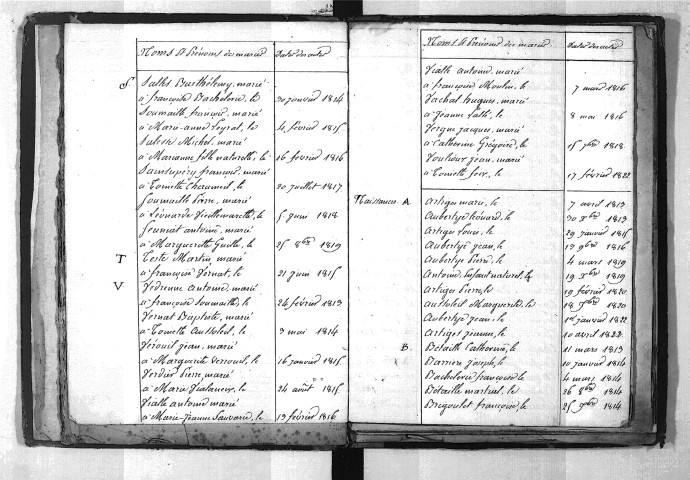 Noms et Prénoms des mariés Dates des actes
S. Salles Barthélemy, marié
à françoise Bachelerie, le 30 janvier 1814
Soumaille françois, marié
à Marie-anne Leyrat, le 4 février 1815
Salesse Michel, marié
à Marianne fille naturelle, le 16 février 1816
Saintupéry françois, marié
à Toinette Chaumeil, le 20 juillet 1817
Soumaille Pierre, marié
à Léonarde Vieillemaretti, le 5 juin 1818
antoine, marié
à Marguerite le 25 8bre 1819
T Teste Martin, marié
à françoise Vernat, le 21 juin 1815
V Vedrenne Antoine, marié
à françoise Soumaille, le 24 février 1813
Vernat Baptiste, marié
à Toinette le 3 mai 1814
Verouil jean, marié
à Marguerite Verrouil, le 16 janvier 1815
Verdier Pierre, marié
à Marie Vialaneix, le 24 août 1815
Vialle antoine marié
à Marie-Jeanne Sauvanie, le 13 février 1816
Noms et Prénoms des mariés Dates des actes
Vialle antoine, marié
à françoise Moulin, le 7 mars 1816
Vachal hugues, marié
à Jeanne le 8 mai 1816
Vergne Jacques, marié
à Catherine Grégoire, le 15 7bre 1818
Jean, marié
à Toinette le 17 février 1822
Naissances A. Artiges marie, le 7 avril 1813
Aubertye léonard, le 30 Xbre 1813
Artiges Louis, le 29 janvier 1815
Aubertye jean, le 13 9bre 1816
Aubertye Pierre, le 4 mars 1819
Antoine, Enfant naturel, le 19 Xbre 1819
Artiges Pierre, le 19 février 1820
Marguerite, le 18 Xbre 1820
Aubertye jean, le 1er janvier 1822
Artiges jeanne, le 10 avril 1822
B. Betaille Catherine, le 11 mars 1813
Barrière Joseph, le 10 janvier 1814
Bachelerie françoise le 4 mars 1814
Bétaille martial, le 26 8bre 1814
Bregoulet françoise, le 25 9bre 1814